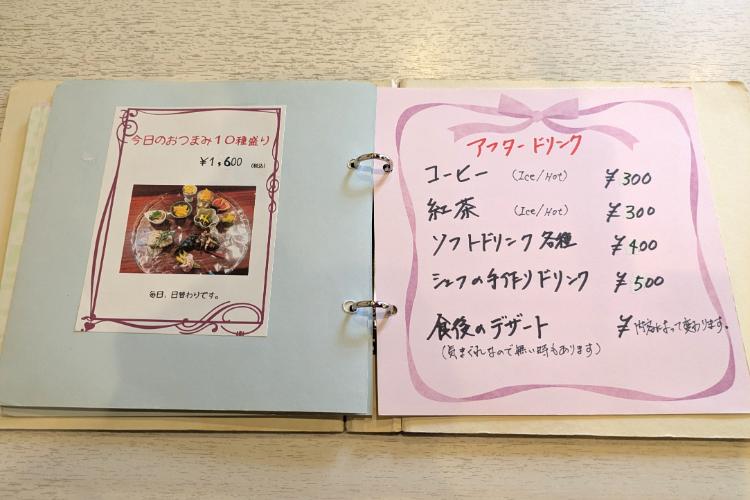 今日のおつまみ10種盛り
¥1,600 (税込)
毎日、日替わりです。
アフタードリンク
コーヒー (Ice/Hot) ¥300
紅茶 (Ice/Hot) ¥300
ソフトドリンク各種 ¥400
シェフの手作りドリンク ¥500
食後のデザート ¥内容によって変わります。
(気まぐれなので無い時もあります)